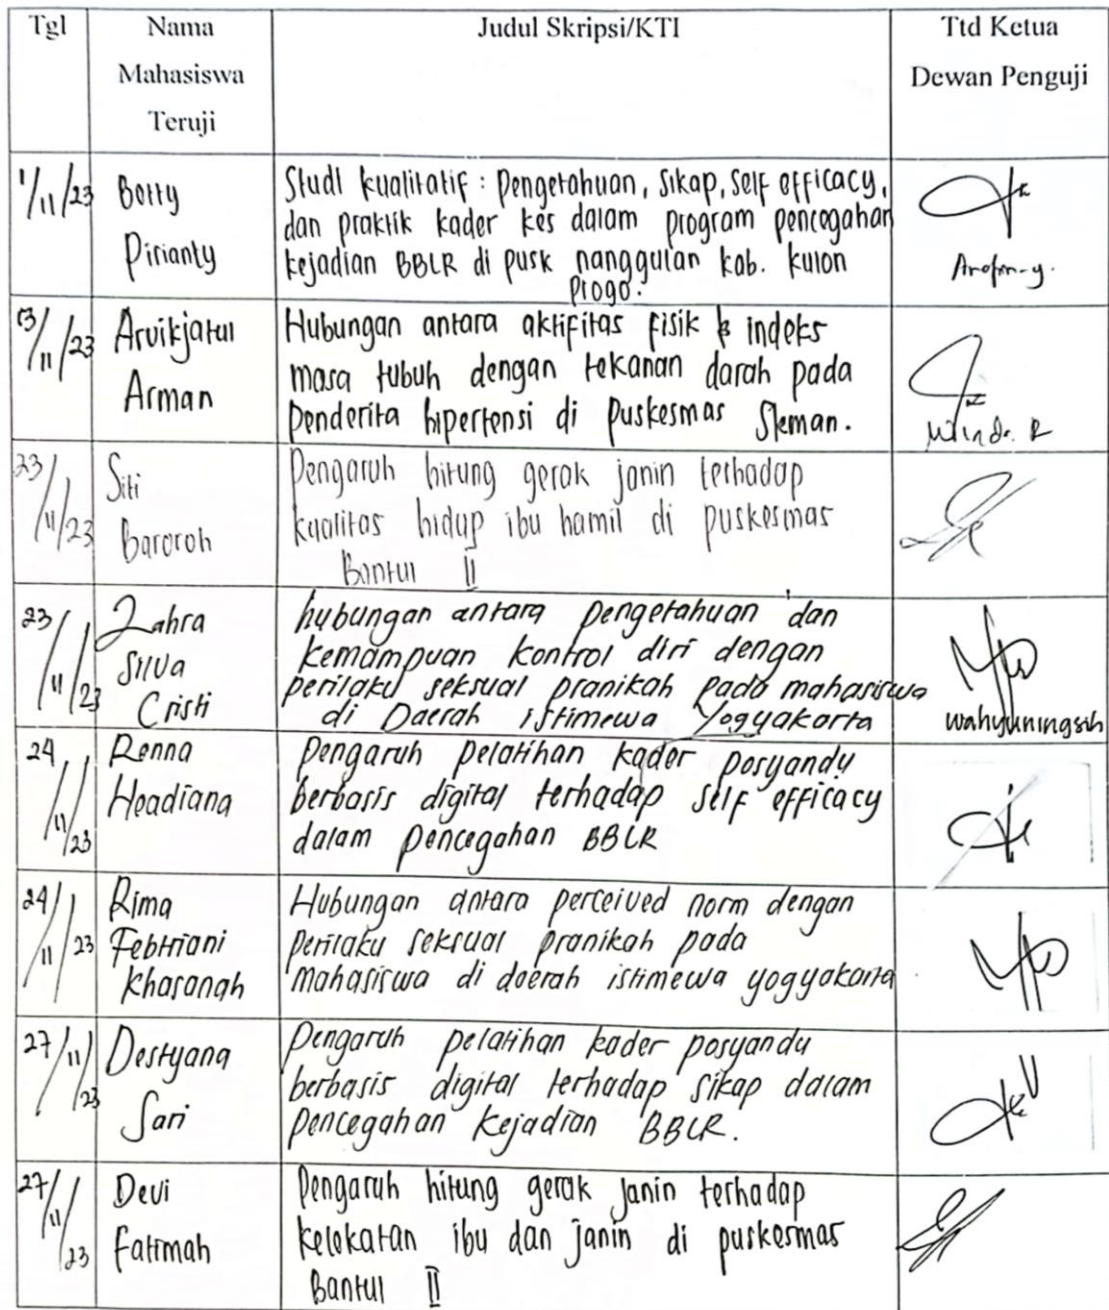 Tgl
Nama
Mahasiswa
Teruji
Judul Skripsi/KTI
Ttd Ketua
Dewan Penguji
1/11/23
Betty
Pirianty
Studi kualitatif : Pengetahuan, Sikap, Self efficacy,
dan praktik kader kes dalam program pencegahan
kejadian BBLR di pusk nanggulan kab. kulon
Progo.
13/11/23
Arvikjatul
Arman
Hubungan antara aktifitas fisik & indeks
masa tubuh dengan tekanan darah pada
penderita hipertensi di puskesmas Sleman.
23/11/23
Siti
Baroroh
Pengaruh hitung gerak janin terhadap
kualitas hidup ibu hamil di puskesmas
Bantul II
23/11/23
Zahra
Silva
Cristi
hubungan antara pengetahuan dan
kemampuan kontrol diri dengan
perilaku seksual pranikah pada mahasiswa
di Daerah istimewa Yogyakarta
wahyuningsih
24/11/23
Renna
Headiana
Pengaruh pelatihan kader posyandu
berbasis digital terhadap self efficacy
dalam pencegahan BBLR
24/11/23
Rima
Febriani
Khasanah
Hubungan antara perceived norm dengan
perilaku seksual pranikah pada
mahasiswa di daerah istimewa yogyakarta
27/11/23
Destyana
Sari
Pengaruh pelatihan kader posyandu
berbasis digital terhadap sikap dalam
pencegahan kejadian BBLR.
27/11/23
Devi
Fatimah
Pengaruh hitung gerak janin terhadap
kelekatan ibu dan janin di puskesmas
Bantul II